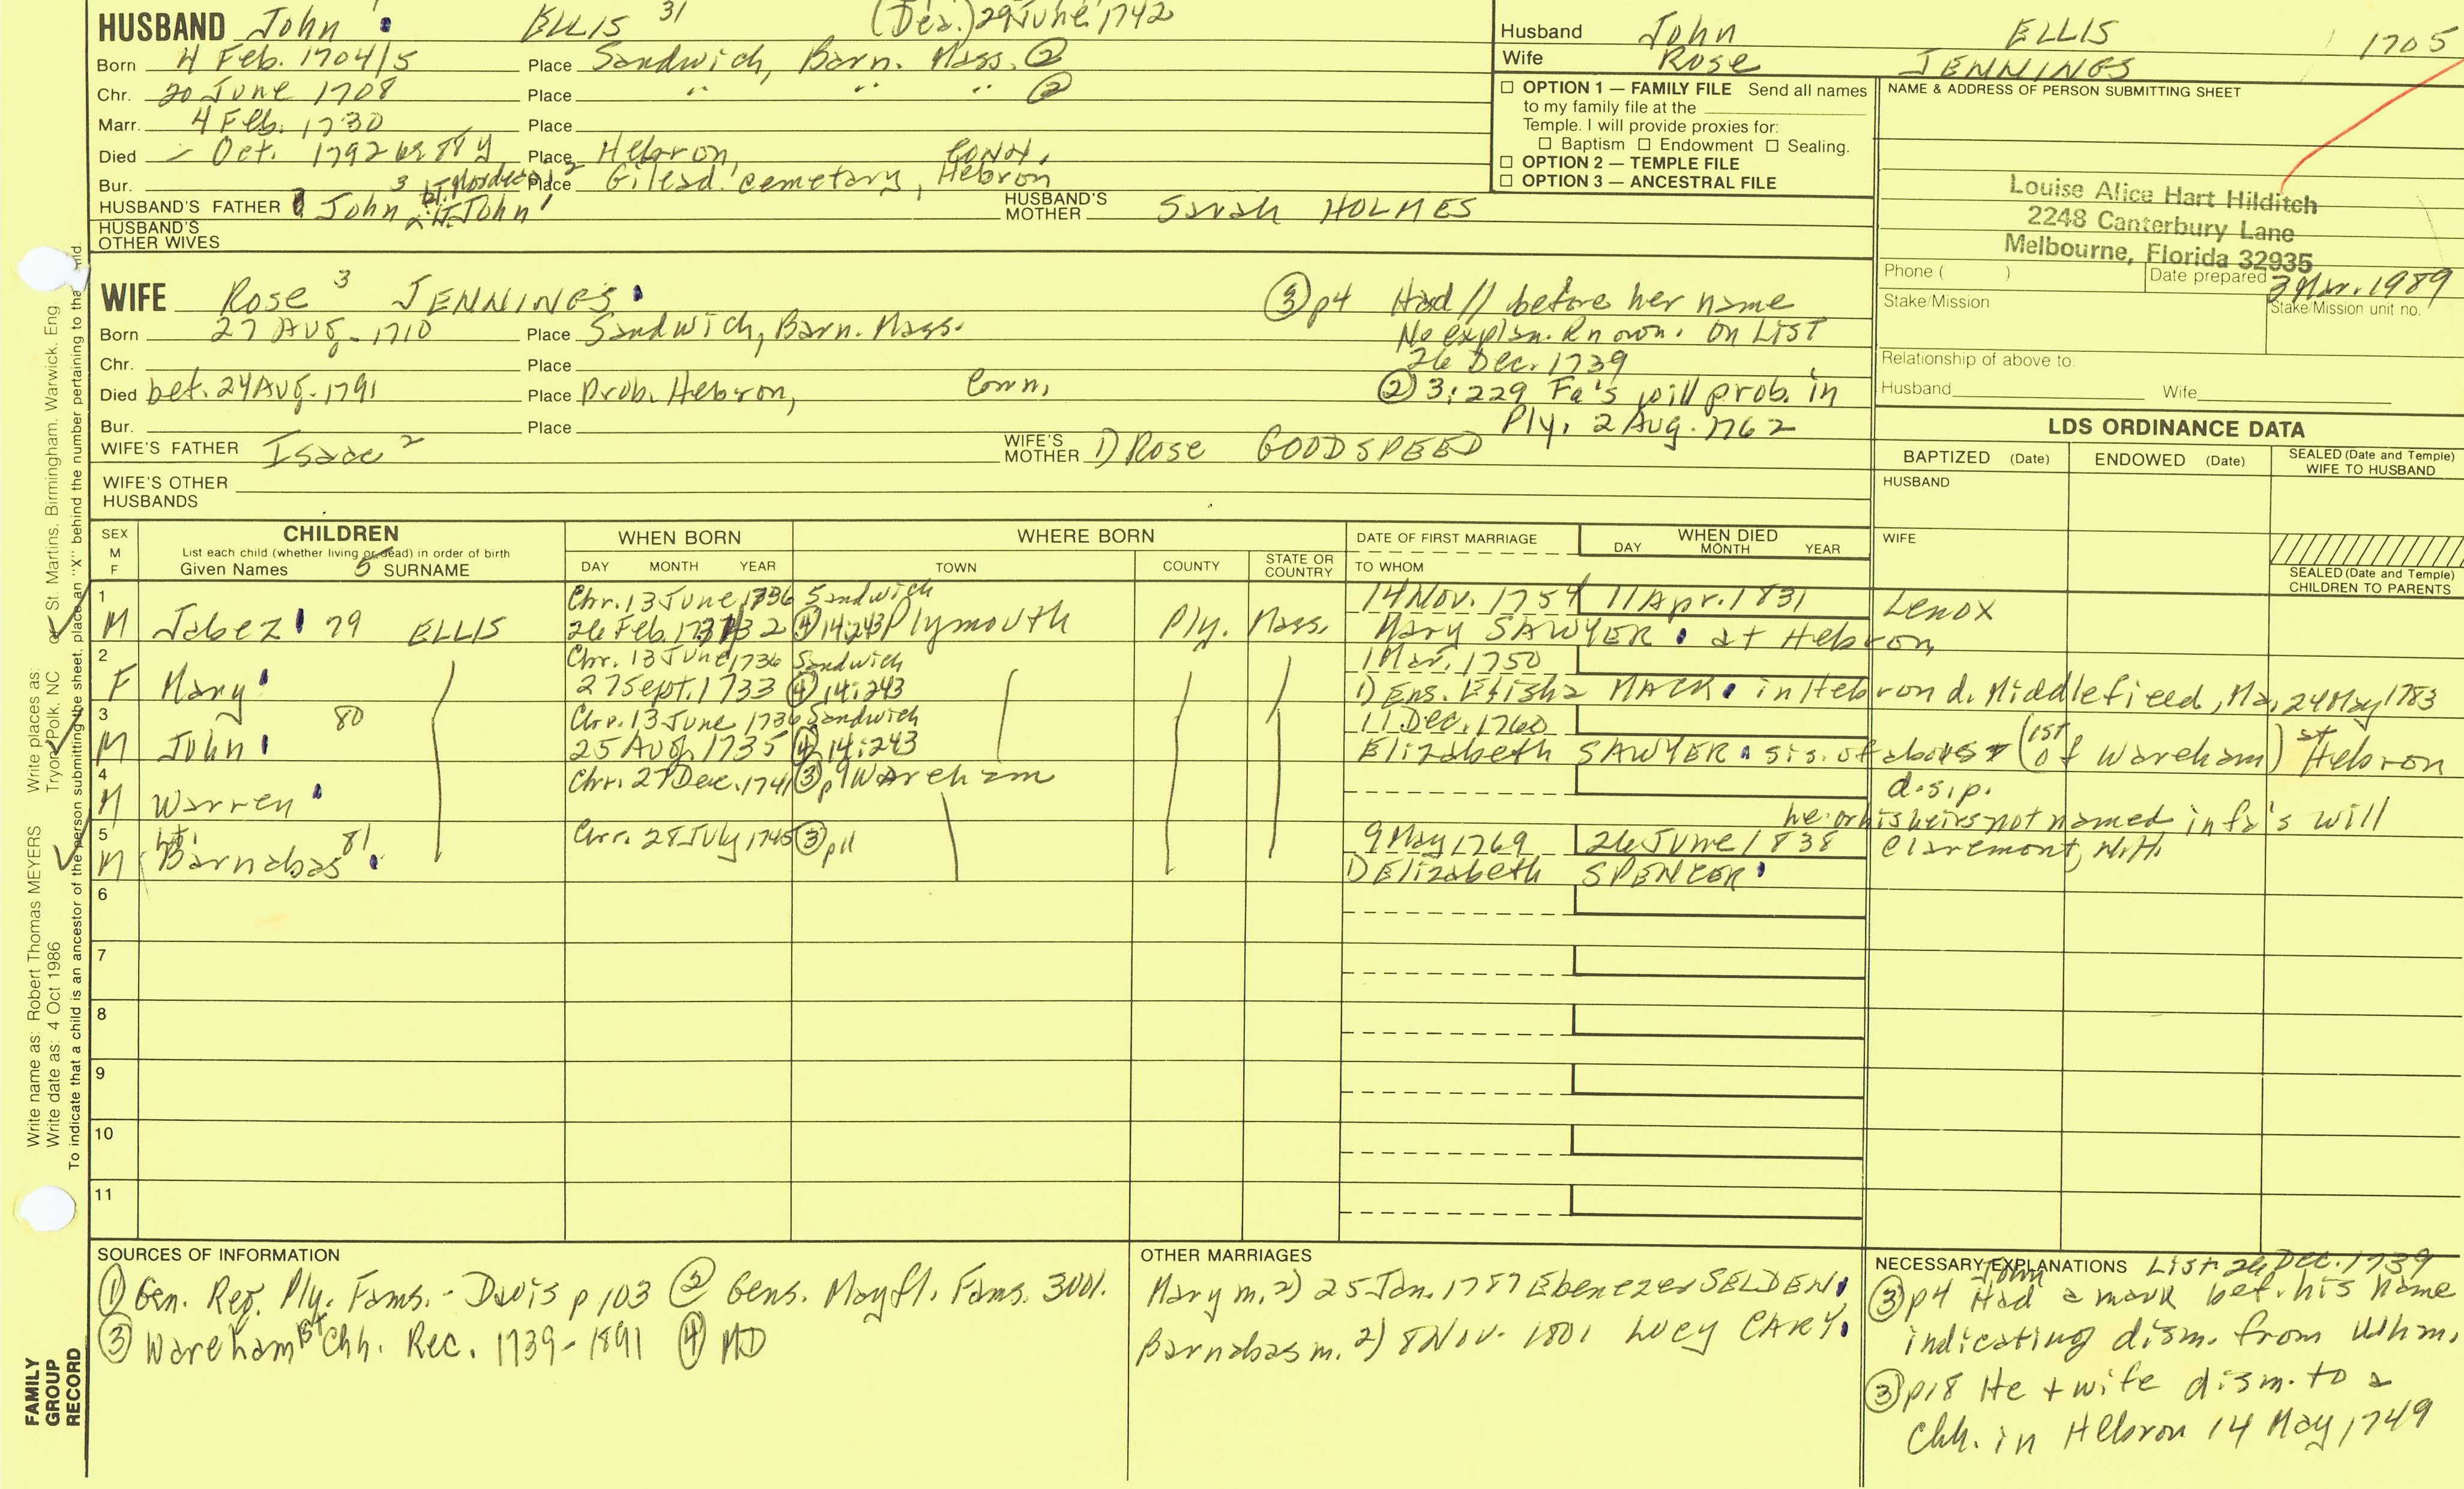 HUSBAND John ELLIS 31 (Dea.) 29 June 1742
Born 4 Feb. 1704/5 Place Sandwich, Barn. Mass. ②
Chr. 20 June 1708 Place " " " ②
Marr. 4 Feb. 1730 Place
Died - Oct. 1792 Place Hebron, Conn.
Bur. Place Gilead cemetary, Hebron
HUSBAND'S FATHER John HUSBAND'S MOTHER Sarah HOLMES
3 Lt. Mordecai 2 Lt. John 1
HUSBAND'S OTHER WIVES
Husband John ELLIS 1705
Wife Rose JENNINGS
☐ OPTION 1 — FAMILY FILE Send all names
to my family file at the
Temple. I will provide proxies for:
☐ Baptism ☐ Endowment ☐ Sealing.
☐ OPTION 2 — TEMPLE FILE
☐ OPTION 3 — ANCESTRAL FILE
NAME & ADDRESS OF PERSON SUBMITTING SHEET
Louise Alice Hart Hilditch
2248 Canterbury Lane
Melbourne, Florida 32935
Phone ( ) Date prepared 3 Mar. 1989
Stake/Mission Stake/Mission unit no.
Relationship of above to:
Husband Wife
WIFE Rose 3 JENNINGS
Born 27 Aug. 1710 Place Sandwich, Barn. Mass.
Chr. Place
Died bef. 24 Aug. 1791 Place Prob. Hebron, Conn.
Bur. Place
WIFE'S FATHER Isaac 2 WIFE'S MOTHER 1) Rose GOODSPEED
WIFE'S OTHER HUSBANDS
③ p4 Had // before her name
No explan. known. On LIST
26 Dec. 1739
② 3:229 Fa's will prob. in
Ply. 2 Aug. 1762
LDS ORDINANCE DATA
BAPTIZED (Date) ENDOWED (Date) SEALED (Date and Temple) WIFE TO HUSBAND
HUSBAND
WIFE
SEALED (Date and Temple) CHILDREN TO PARENTS
SEX M F
CHILDREN
List each child (whether living or dead) in order of birth
Given Names 5 SURNAME
WHEN BORN
DAY MONTH YEAR
WHERE BORN
TOWN COUNTY STATE OR COUNTRY
DATE OF FIRST MARRIAGE
TO WHOM
WHEN DIED
DAY MONTH YEAR
1 Chr. 13 June 1736 Sandwich 14 Nov. 1754 11 Apr. 1831 Lenox
M Jabez 79 ELLIS 26 Feb. 1731/32 ④ 14:243 Plymouth Ply. Mass. Mary SAWYER at Hebron
2 Chr. 13 June 1736 Sandwich 1 Mar. 1750
F Mary 27 Sept. 1733 ④ 14:243 1) Ens. Elisha MACK in Hebron d. Middlefield, Ma, 24 May 1783
3 80 Chr. 13 June 1736 Sandwich 11 Dec. 1760
M John 25 Aug. 1735 ④ 14:243 Elizabeth SAWYER sis. of above (1st of Wareham) at Hebron
4 Chr. 27 Dec. 1741 ③ p9 Wareham d.s.p.
M Warren he or his heirs not named in fa's will
5 Lt. 81 Chr. 28 July 1745 ③ p11 9 May 1769 26 June 1838 Claremont, N.H.
M Barnabas 1) Elizabeth SPENCER
6
7
8
9
10
11
SOURCES OF INFORMATION
① Gen. Reg. Ply. Fams. - Davis p 103 ② Gens. Mayfl. Fams. 3 vol.
③ Wareham 1st Chh. Rec. 1739-1891 ④ MD
OTHER MARRIAGES
Mary m. 2) 25 Jan. 1787 Ebenezer SELDEN
Barnabas m. 2) 8 Nov. 1801 Lucy CARY
NECESSARY EXPLANATIONS List 26 Dec. 1739
③ p4 John Had a mark bef. his name
indicating dism. from Whm.
③ p18 He + wife dism. to a
Chh. in Hebron 14 May 1749
Write name as: Robert Thomas MEYERS Write places as:
Write date as: 4 Oct 1986 Tryon, Polk, NC or St. Martins, Birmingham, Warwick, Eng
To indicate that a child is an ancestor of the person submitting the sheet, place an "X" behind the number pertaining to that child.
FAMILY GROUP RECORD